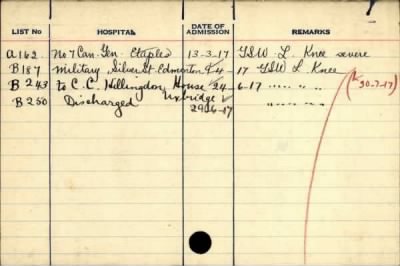 LIST No HOSPITAL DATE OF ADMISSION REMARKS
A162 No 7 Can. Gen. Etaples 13-3-17 GSW L. Knee severe
B187 Military, Silver St Edmonton 4-17 GSW L Knee
B243 to C.C. Hillingdon House 24 6-17 " " "
Uxbridge
(30-7-17)
B250 Discharged 29-6-17 " " "